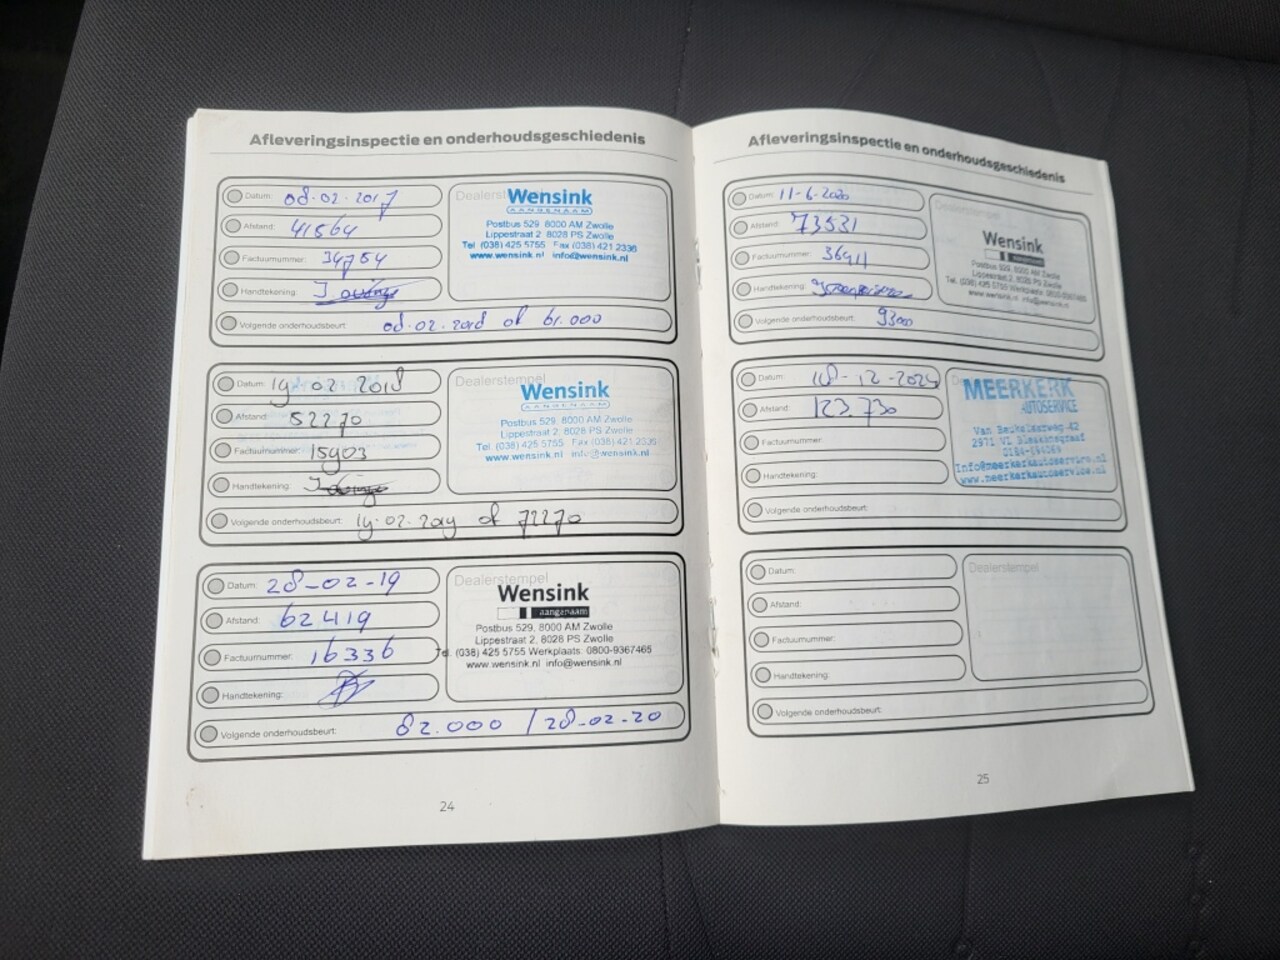 Afleveringsinspectie en onderhoudsgeschiedenis
Datum: 08-02-2017
Afstand: 41564
Factuurnummer: 34754
Handtekening:
Volgende onderhoudsbeurt: 08-02-2018 of 61.000
Dealerstempel
Wensink
AANGENAAM
Postbus 529 8000 AM Zwolle
Lippestraat 2 8028 PS Zwolle
Tel (038) 425 5755 Fax (038) 421 2336
www.wensink.nl info@wensink.nl
Datum: 19-02-2018
Afstand: 52270
Factuurnummer: 15903
Handtekening:
Volgende onderhoudsbeurt: 19-02-2019 of 72270
Dealerstempel
Wensink
AANGENAAM
Postbus 529, 8000 AM Zwolle
Lippestraat 2, 8028 PS Zwolle
Tel (038) 425 5755 Fax (038) 421 2336
www.wensink.nl info@wensink.nl
Datum: 28-02-19
Afstand: 62419
Factuurnummer: 16336
Handtekening:
Volgende onderhoudsbeurt: 82.000 / 28-02-20
Dealerstempel
Wensink
aangenaam
Postbus 529, 8000 AM Zwolle
Lippestraat 2, 8028 PS Zwolle
Tel. (038) 425 5755 Werkplaats: 0800-9367465
www.wensink.nl info@wensink.nl
24
Afleveringsinspectie en onderhoudsgeschiedenis
Datum: 11-6-2020
Afstand: 73531
Factuurnummer: 36911
Handtekening:
Volgende onderhoudsbeurt: 93000
Wensink
aangenaam
Postbus 529, 8000 AM Zwolle
Lippestraat 2, 8028 PS Zwolle
Tel. (038) 425 5755 Werkplaats: 0800-9367465
www.wensink.nl info@wensink.nl
Datum: 18-12-2024
Afstand: 123.730
Factuurnummer:
Handtekening:
Volgende onderhoudsbeurt:
MEERKERK
AUTOSERVICE
Van Beukelaerweg 42
2971 VL Bleskensgraaf
info@meerkerkautoservice.nl
www.meerkerkautoservice.nl
Datum:
Afstand:
Factuurnummer:
Handtekening:
Volgende onderhoudsbeurt:
Dealerstempel
25